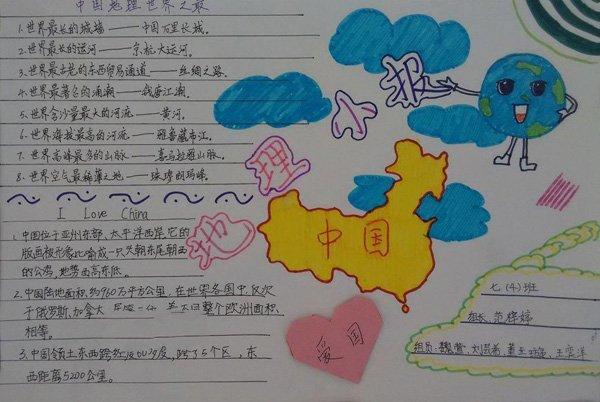 中国地理世界之最
1.世界最长的城墙——中国万里长城。
2.世界最长的运河——京杭大运河。
3.世界最古老的东西贸易通道——丝绸之路。
4.世界最著名的涌潮——钱塘江潮。
5.世界含沙量最大的河流——黄河。
6.世界海拔最高的河流——雅鲁藏布江。
7.世界高峰最多的山脉——喜马拉雅山脉。
8.世界空气最稀薄之地——珠穆朗玛峰。
I Love China
1.中国位于亚州东部、太平洋西岸,它的
版画被形象比喻成一只头朝东尾朝西
的公鸡,地势西高东低。
2.中国陆地面积约960万平方公里,在世界各国中,仅次
于俄罗斯、加拿大 整个欧洲面积
相等。
3.中国领土东西跨经度60多度,跨了5个区,东
西距离5200公里。
地理小报
中国
爱国
七(4)班
组长:范梓婷
组员: